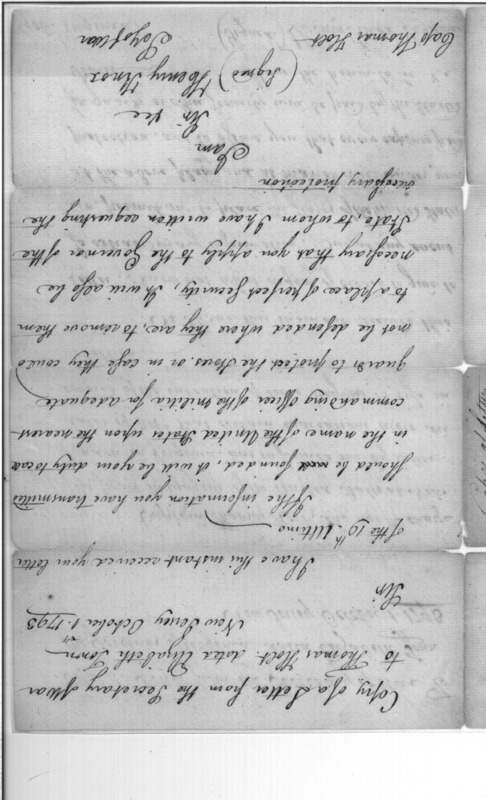 Copy of a Letter from the Secretary of War
to Thomas Holt dated Elizabeth Town
New Jersey October 1. 1793
Sir
I have this instant received your letter
of the 19th Ultimo
If the information you have transmitted
should be founded, it will be your duty to call
in the name of the United States upon the nearest
commanding officer of the Militia for adequate
guards to protect the Stores. or in case they could
not be defended where they are, to remove them
to a place of perfect security, It will also be
necessary that you apply to the Governor of the
State, to whom I have written requesting the
necessary protection
I am
Sir &ce
(Signed) Henry Knox
Secy of War
Capt Thomas Holt